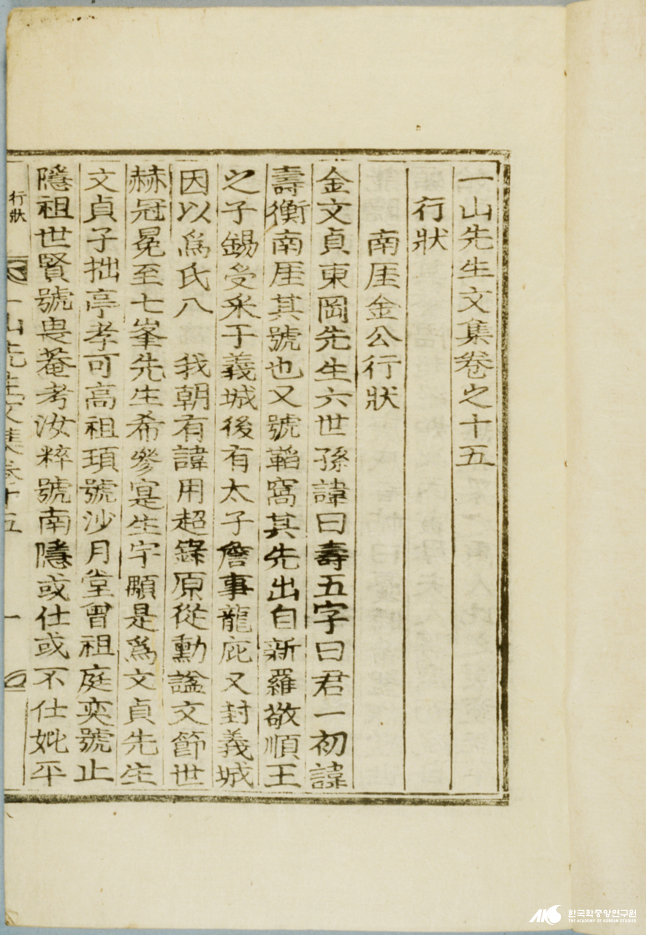 一山先生文集卷之十五
行狀
南厓金公行狀
金文貞東岡先生六世孫諱曰壽五字曰君一初諱
壽衡南厓其號也又號韜窩其先出自新羅敬順王
之子錫受采于義城後有太子詹事龍庇又封義城
因以爲氏入 我朝有諱用超錄原從勳諡文節世
赫冠冕至七峯先生希參寔生宇顒是爲文貞先生
文貞子拙亭孝可高祖頊號沙月堂曾祖庭奕號止
隱祖世賢號畏菴考汝粹號南隱或仕或不仕妣平
行狀
一山先生文集卷十五
一
한국학중앙연구원
THE ACADEMY OF KOREAN STUDIES